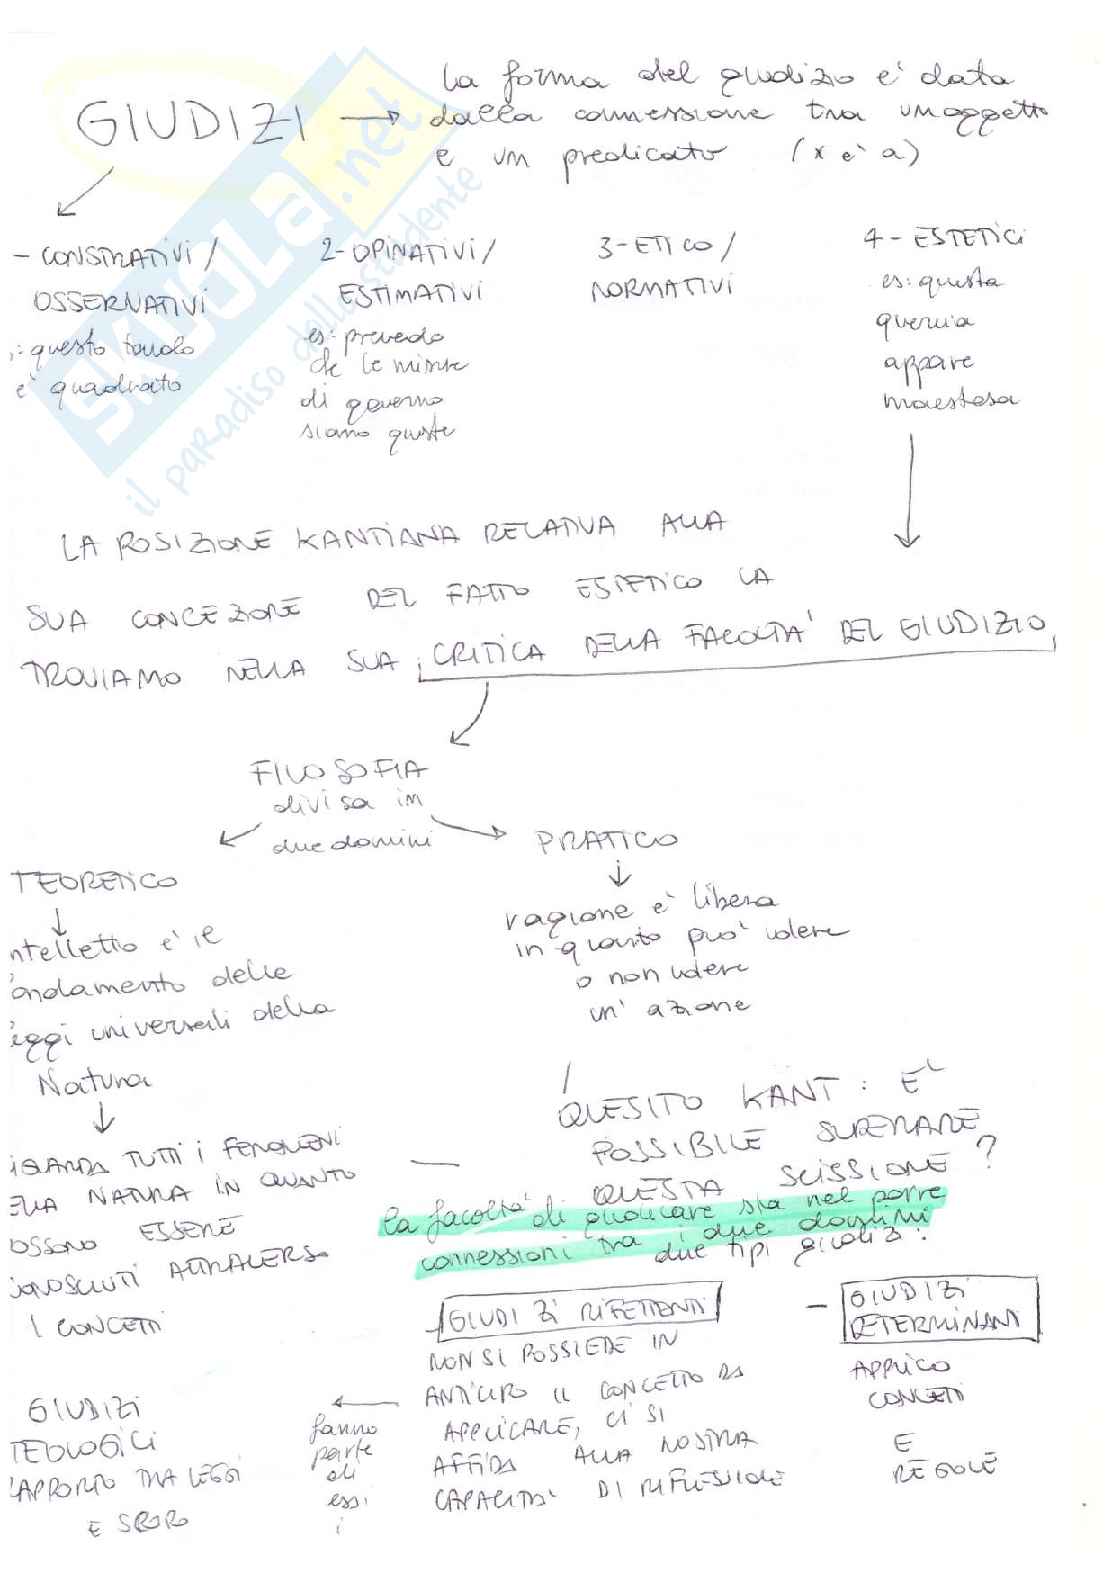 GIUDIZI → la forma del giudizio e' data
dalla connessione tra un oggetto
e un predicato (x e' a)
SKUOLA.net
il paradiso dello studente
- CONSTATIVI /
OSSERVATIVI
: questo tavolo
e' quadrato
2- OPINATIVI /
ESTIMATIVI
es: prevedo
che le misure
di governo
siano giuste
3- ETICO /
NORMATIVI
4- ESTETICI
es: questa
quercia
appare
maestosa
LA POSIZIONE KANTIANA RELATIVA ALLA
SUA CONCEZIONE DEL FATTO ESTETICO LA
TROVIAMO NELLA SUA CRITICA DELLA FACOLTA' DEL GIUDIZIO
FILOSOFIA
divisa in
due domini
TEORETICO
ntelletto e' il
ondamento delle
eggi universali della
Natura
IGUARDA TUTTI i FENOMENI
ELLA NATURA IN QUANTO
OSSONO ESSERE
CONOSCIUTI ATTRAVERSO
I CONCETTI
PRATICO
ragione e' libera
in quanto puo' volere
o non volere
un' azione
QUESITO KANT: E'
POSSIBILE SUPERARE
QUESTA SCISSIONE?
la facolta' di giudicare sta nel porre
connessioni tra i due domini
due tipi giudizi:
- GIUDIZI RIFLETTENTI
NON SI POSSIEDE IN
ANTICIPO IL CONCETTO DA
APPLICARE, CI SI
AFFIDA ALLA NOSTRA
CAPACITA' DI RIFLESSIONE
- GIUDIZI
DETERMINANTI
APPLICO
CONCETTI
E
REGOLE
fanno
parte
di
essi
i
GIUDIZI
TEOLOGICI
RAPPORTO TRA LEGGI
E SCOPO